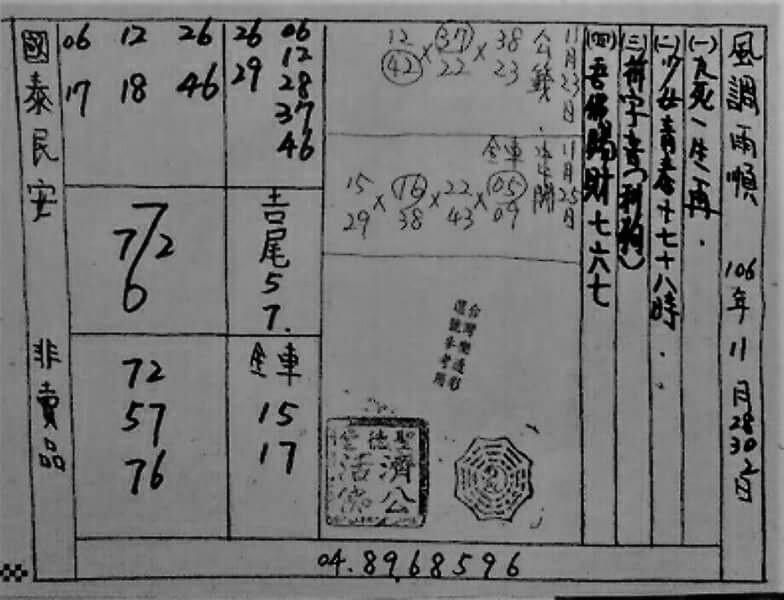 風調雨順 106年11月28 30 2日
(一)九死一生再.
(二)少女青春十七十八時..
(三)前字意(利狗)
(四)吾佛賜財七六七
11月23日
公籤.
38 23
×
37 22
×
12 42
11月25日
全車
05 09
×
22 43
×
16 38
×
15 29
台灣樂透彩
選號參考用
聖德堂
濟公活佛
26 06
12
29 28
37
46
吉尾57.
全車
15
17
06 12 26
17 18 46
7
72
6
72
57
76
國泰民安 非賣品
04.8968596